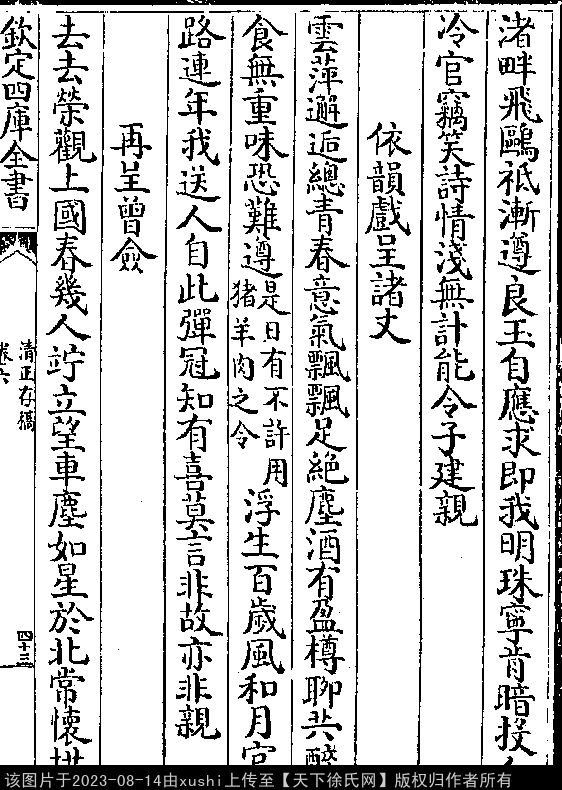 渚畔飛鷗祗漸遵良玉自應求即我明珠寧肯暗投
冷官竊笑詩情淺無計能令子建親
依韻戲呈諸丈
雲萍邂逅總青春意氣飄飄足絶塵酒有盈樽聊共醉
食無重味恐難遵是日有不許用猪羊肉之令浮生百歲風和月
路連年我送人自此彈冠知有喜莫言非故亦非親
再呈曾僉
去去榮觀上國春幾人竚立望車塵如星於北常懷拱
欽定四庫全書
清正存稿
卷六
四十三
该图片于2023-08-14由xushi上传至【天下徐氏网】版权归作者所有